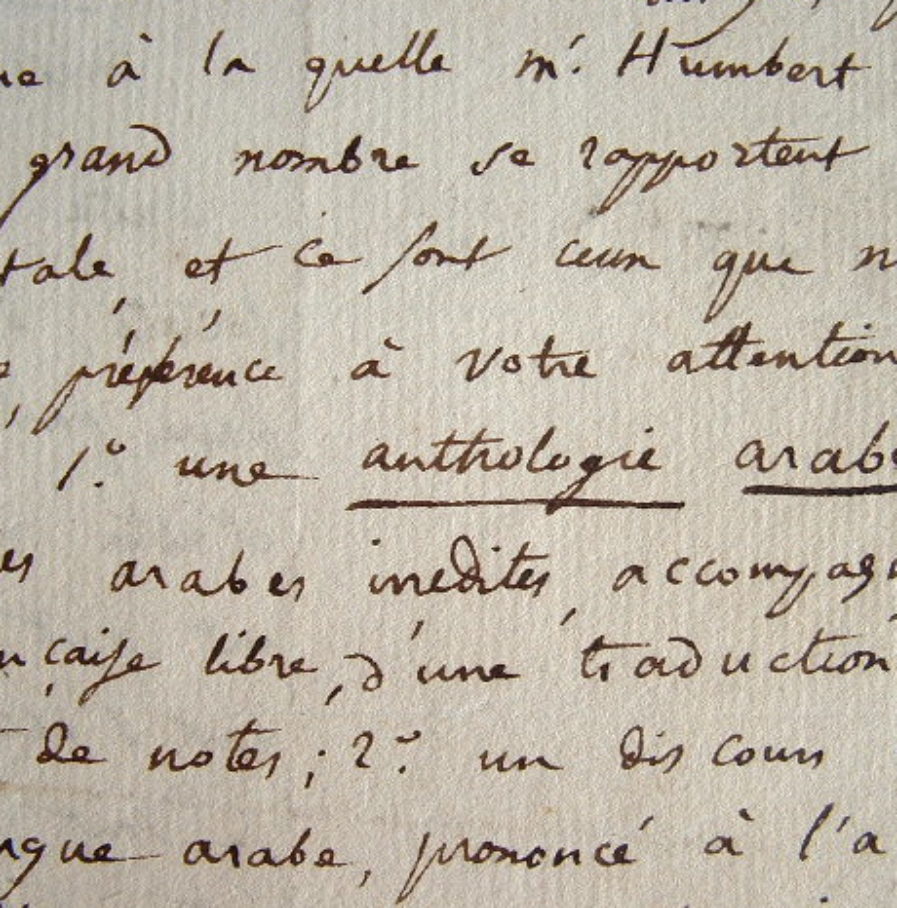 ue à la quelle mr. Humbert
grand nombre se rapportent
tale, et ce sont ceux que n
, préférence à votre attention
1.° une anthologie arabe
es arabes inédites, accompagn
nçaise libre, d'une traduction
de notes; 2.° un discours
ngue arabe, prononcé à l'a